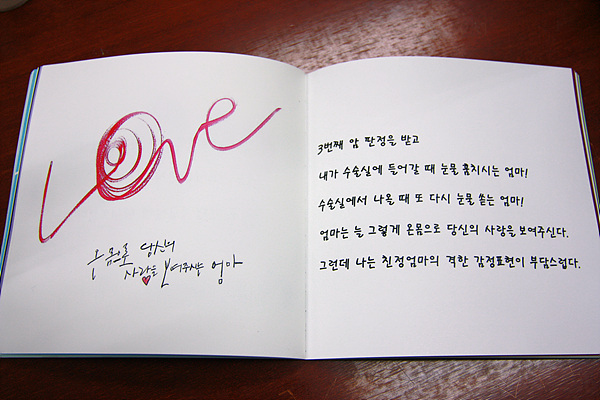 Love
온 몸으로 당신의
사랑을 보여주시는 엄마
3번째 암 판정을 받고
내가 수술실에 들어갈 때 눈물 훔치시는 엄마!
수술실에서 나올 때 또 다시 눈물 쏟는 엄마!
엄마는 늘 그렇게 온몸으로 당신의 사랑을 보여주신다.
그런데 나는 친정엄마의 격한 감정표현이 부담스럽다.